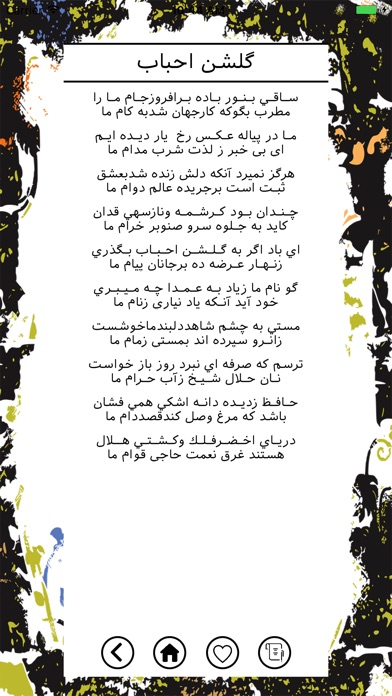 گلشن احباب
ساقي بنور باده برافروزجام ما را
مطرب بگوكه كارجهان شدبه كام ما
ما در پياله عكس رخ يار ديده ايم
اى بى خبر ز لذت شرب مدام ما
هرگز نميرد آنكه دلش زنده شدبعشق
ثبت است برجريده عالم دوام ما
چندان بود كرشمه ونازسهي قدان
كايد به جلوه سرو صنوبر خرام ما
اي باد اگر به گلشن احباب بگذري
زنهار عرضه ده برجانان پيام ما
گو نام ما زياد به عمدا چه ميبري
خود آيد آنكه ياد نيارى زنام ما
مستي به چشم شاهددلبندماخوشست
زانرو سپرده اند بمستى زمام ما
ترسم كه صرفه اي نبرد روز باز خواست
نان حلال شيخ زآب حرام ما
حافظ زديده دانه اشكي همي فشان
باشد كه مرغ وصل كندقصددام ما
درياي اخضرفلك وكشتي هلال
هستند غرق نعمت حاجى قوام ما